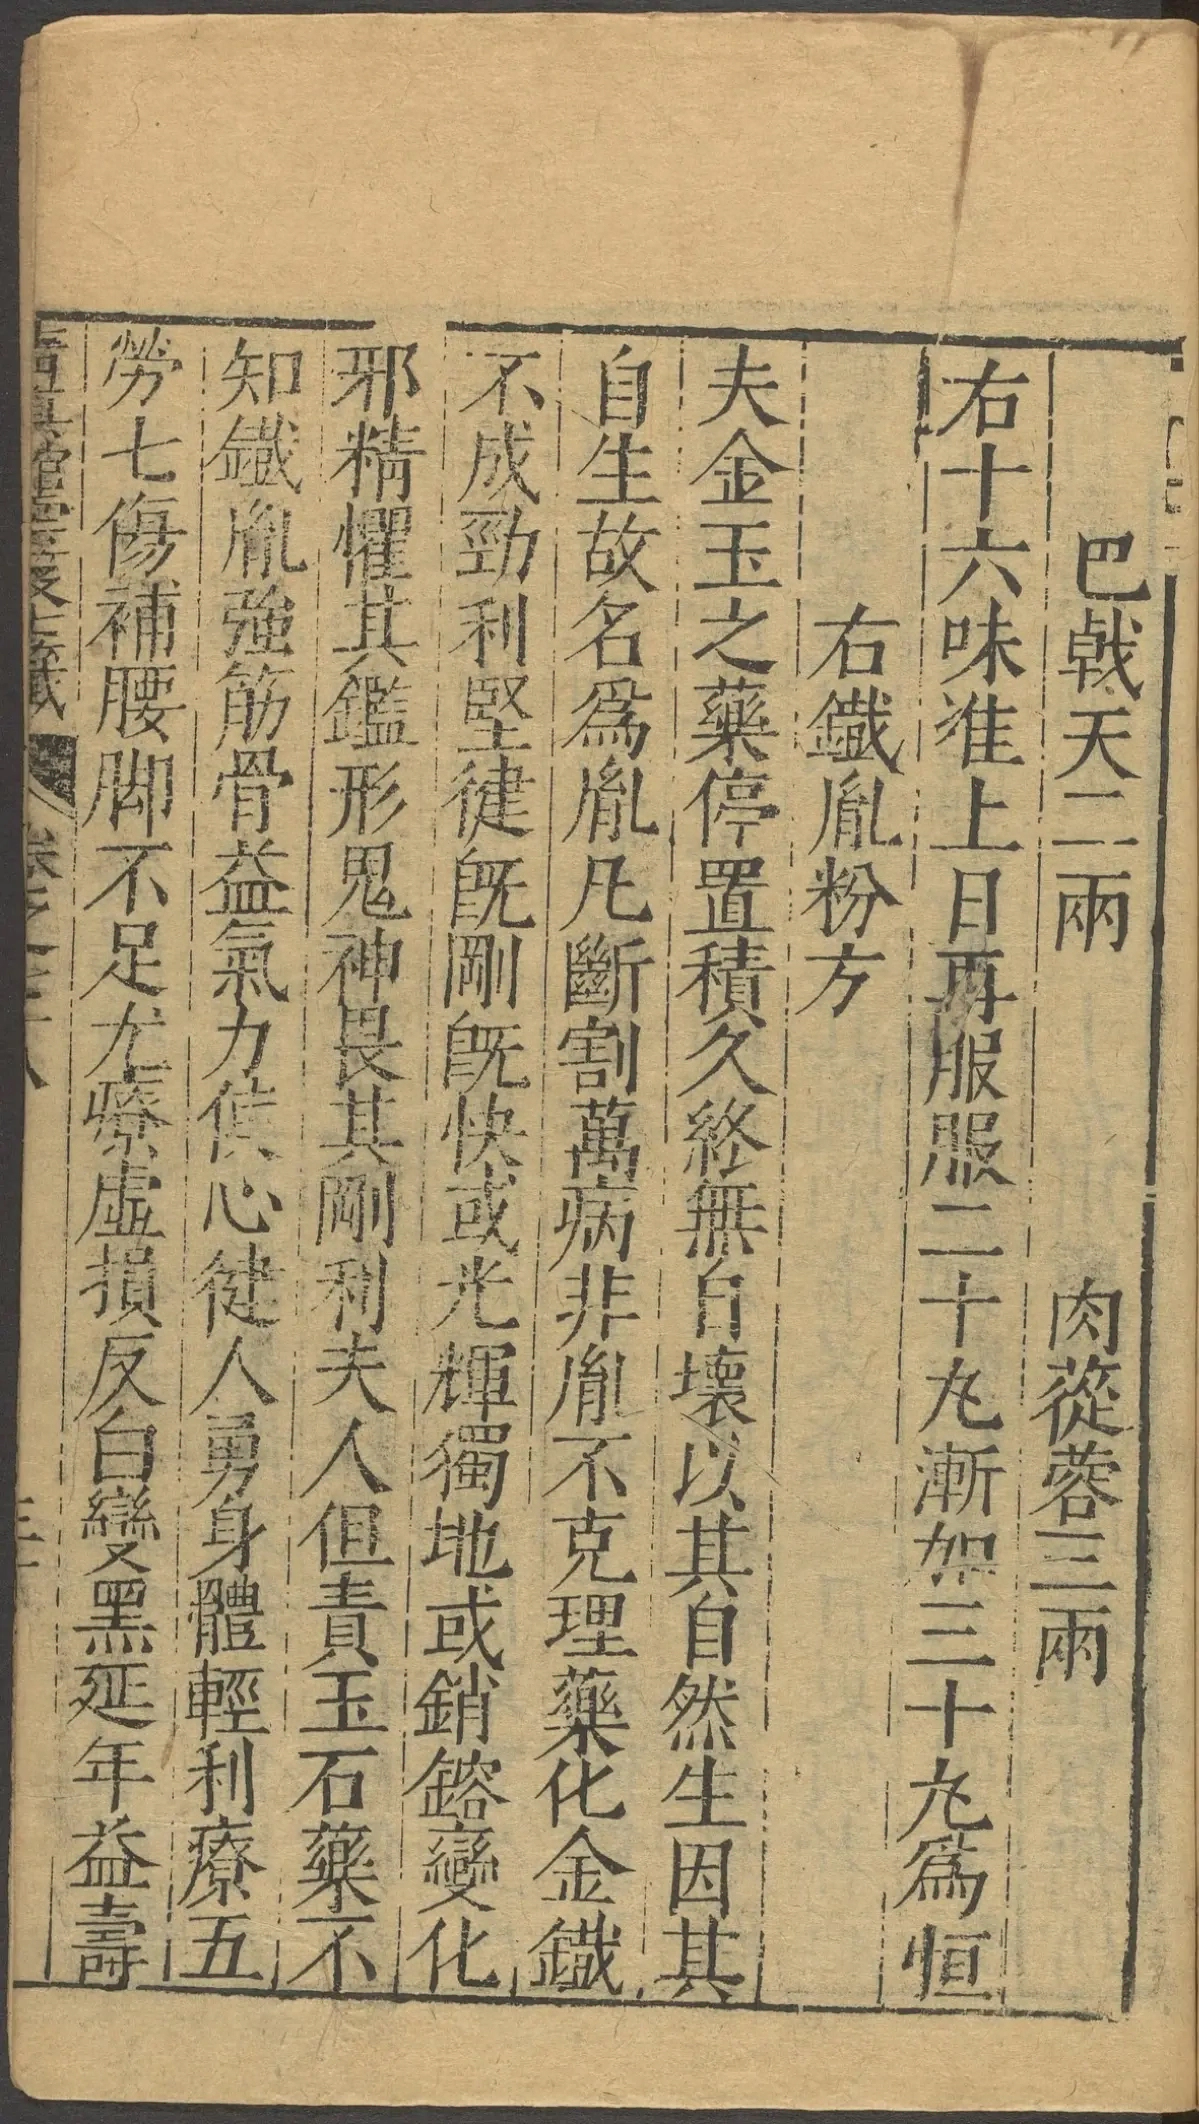 巴戟天二兩　肉蓯蓉三兩
右十六味准上日再服服二十丸漸加三十丸爲恒
右鐵胤粉方
夫金玉之藥停置積久終無自壞以其自然生因其
自生故名爲胤凡斷割萬病非胤不克理藥化金鐵
不成勁利堅徤旣剛旣快或光輝獨地或銷鎔變化
邪精懼其鑑形鬼神畏其剛利夫人但責玉石藥不
知鐵胤強筋骨益氣力使心徤人勇身體輕利療五
勞七傷補腰脚不足尤療虛損反白變黑延年益壽